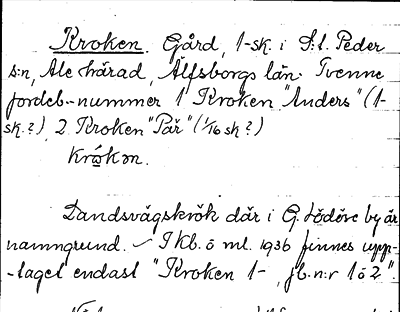 Kroken. Gård, 1-sk. i S:t Peder
s:n, Ale härad, Älfsborgs län. Tvenne
jordeb.-nummer 1 Kroken "Anders" (1-
sk.?) 2. Kroken "Pär" (1/16 sk?)
Krókən.
Landsvägskrök där i G. Lödöse by är
namngrund. I kb. ö ml. 1936 finnes upp-
-taget endast "Kroken 1-, jb.n:r 1 ö 2".